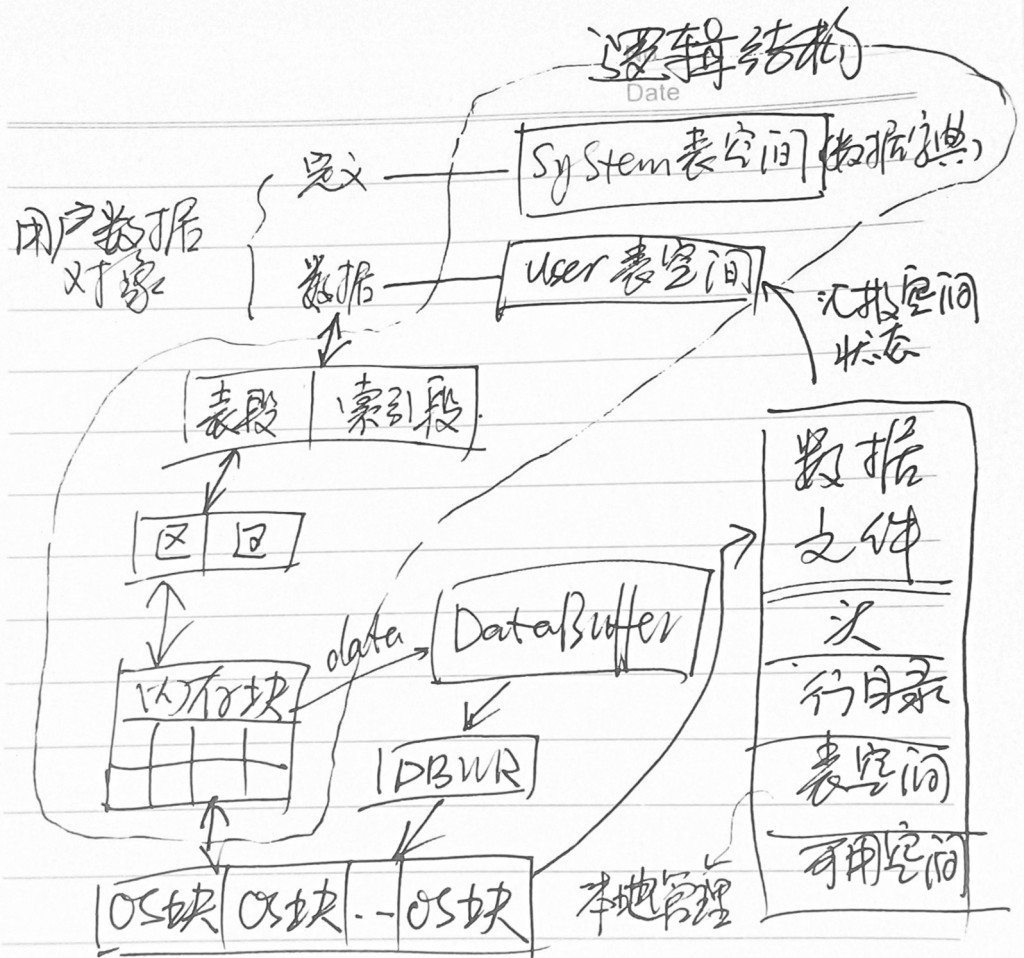 逻辑结构
Date
System表空间(数据字典)
定义
用户数据
对象
数据
user表空间
汇报空间
状态
表段 索引段
数据
文件
区 区
data
DataBuffer
头
内存块
行目录
DBWR
表空间
可用空间
本地管理
OS块 OS块 ... OS块